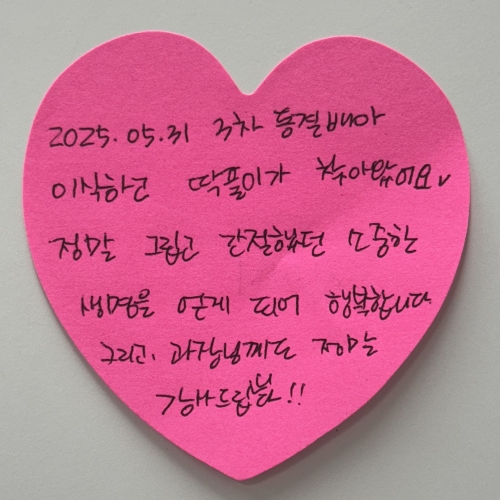 2025. 05. 31 3차 동결배아
이식하고 딱풀이가 찾아왔어요~
정말 그립고 간절했던 소중한
생명을 얻게 되어 행복합니다
그리고, 과장님께도 정말
감사드립니다!!